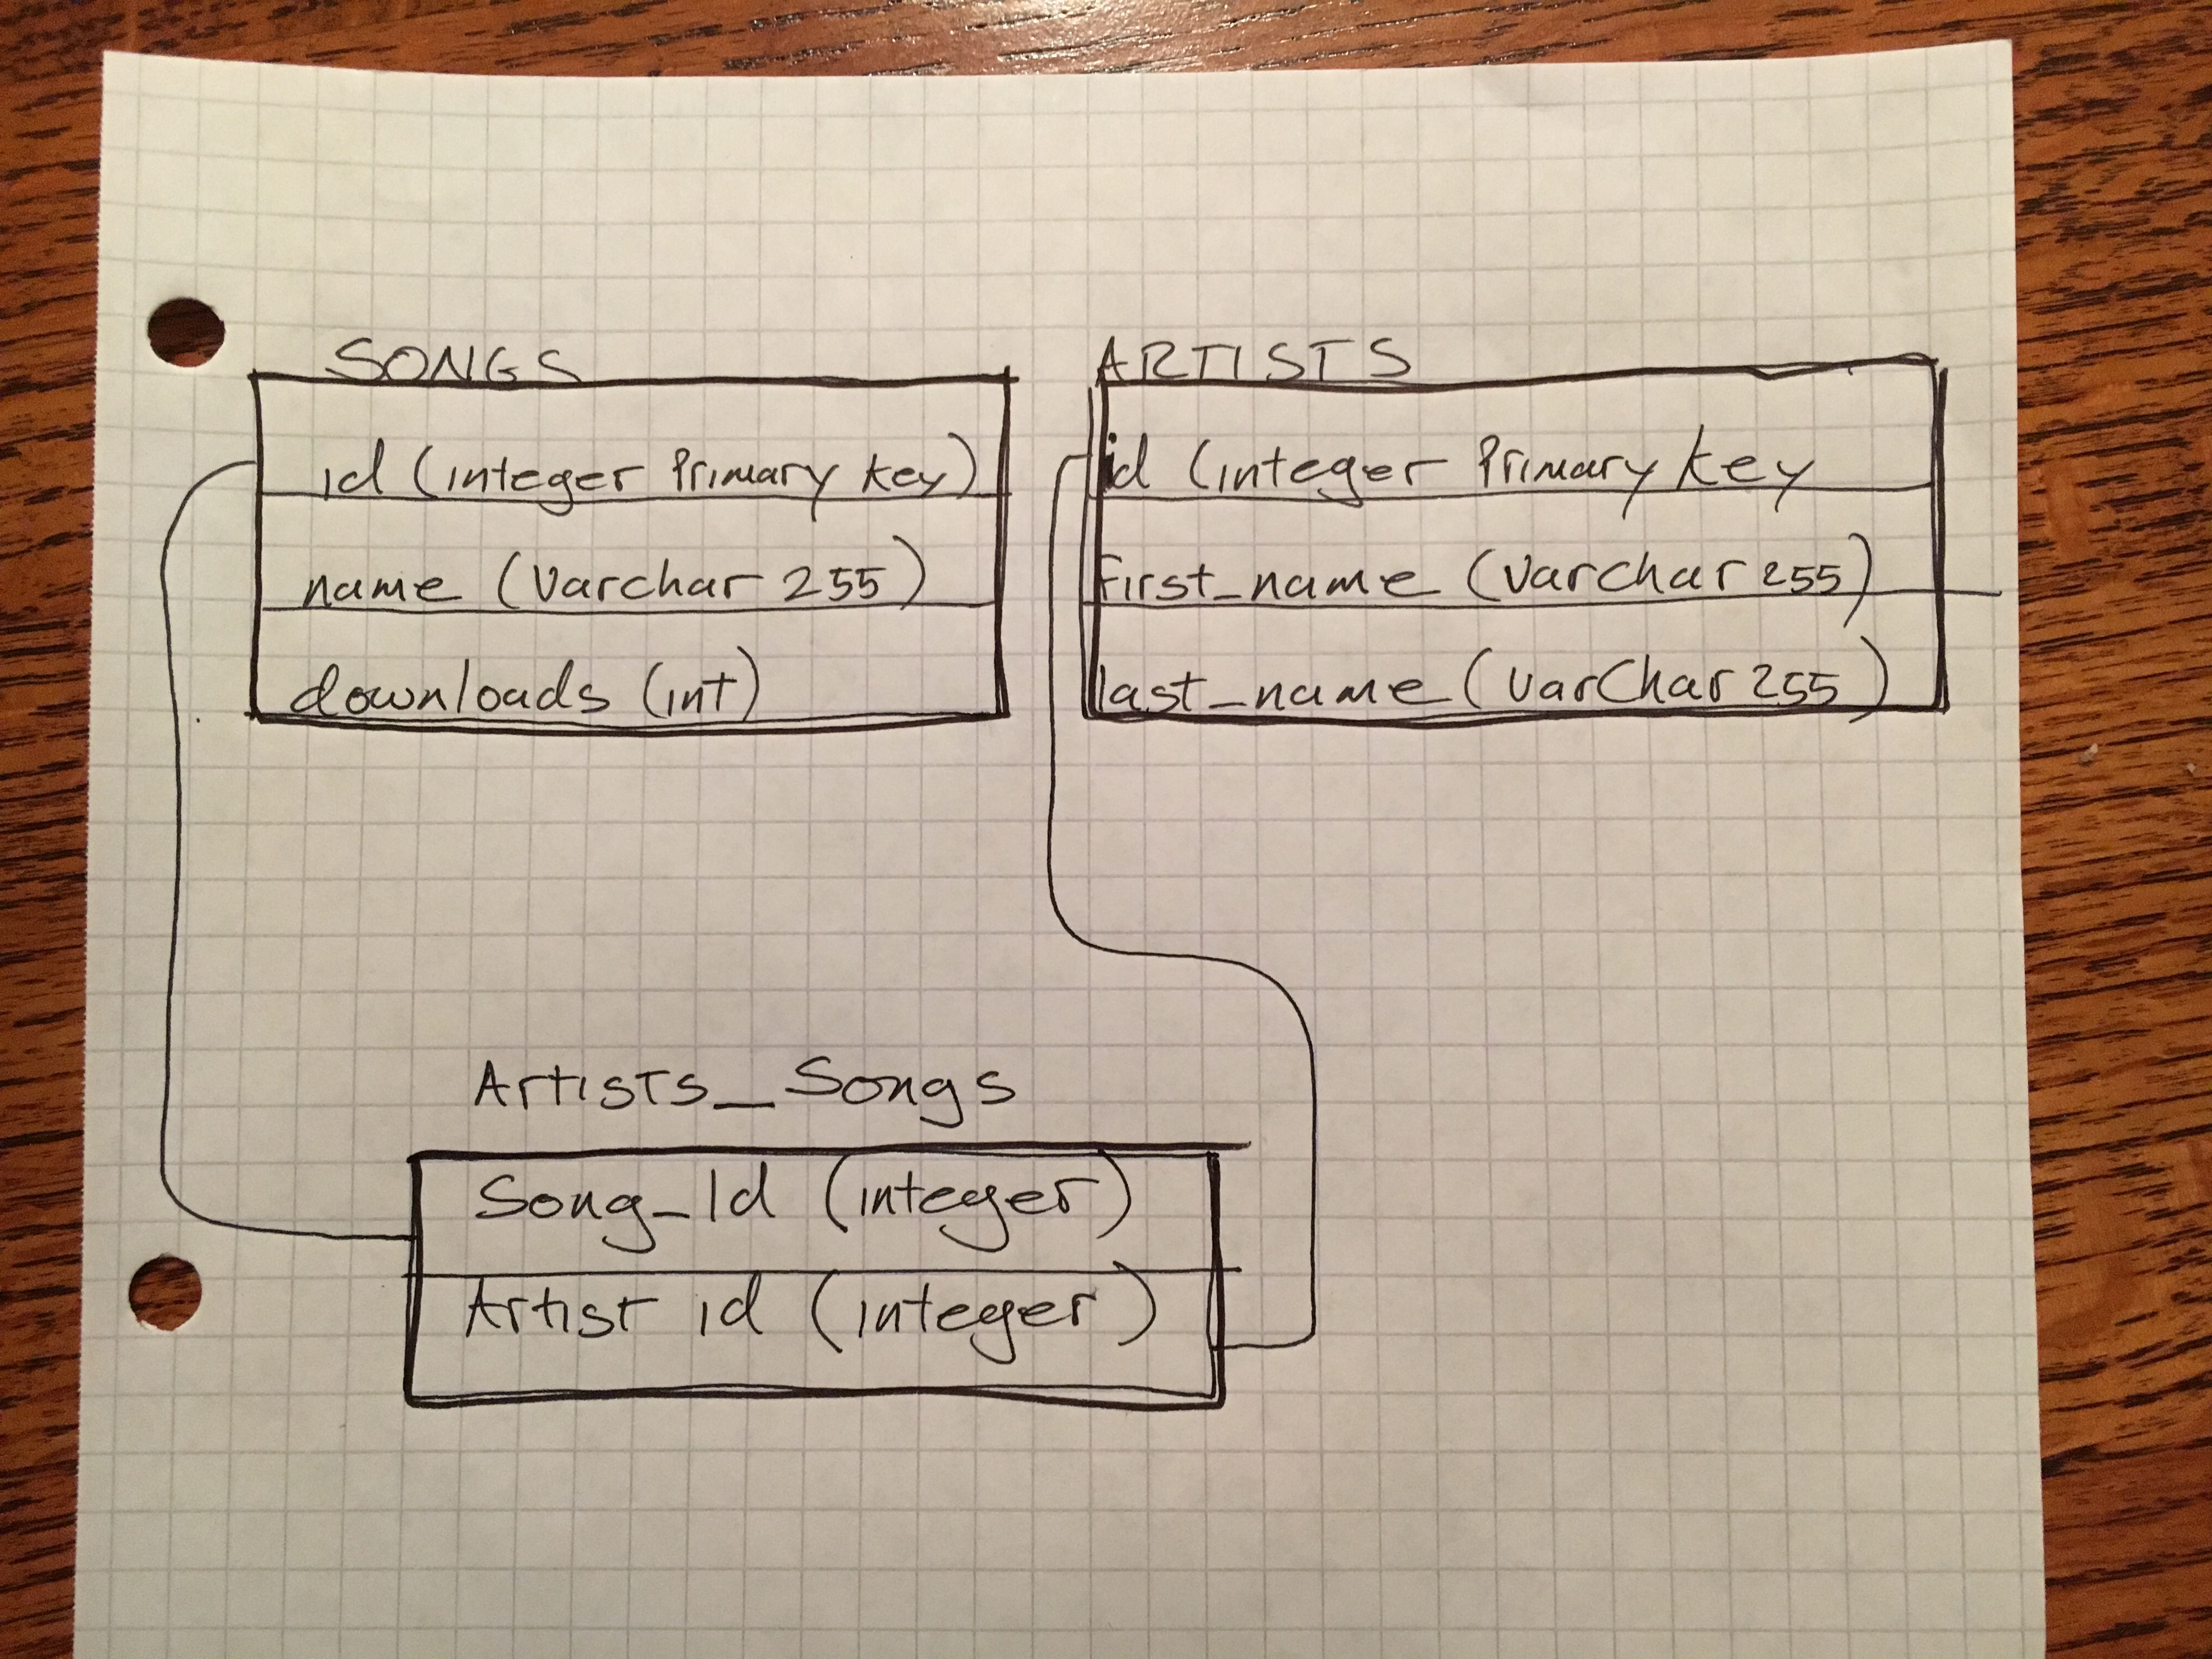 SONGS
id (integer Primary key)
name (Varchar 255)
downloads (int)
ARTISTS
id (integer Primary key
first_name (varchar 255)
last_name (varchar 255)
Artists_Songs
Song_Id (integer)
Artist id (integer)